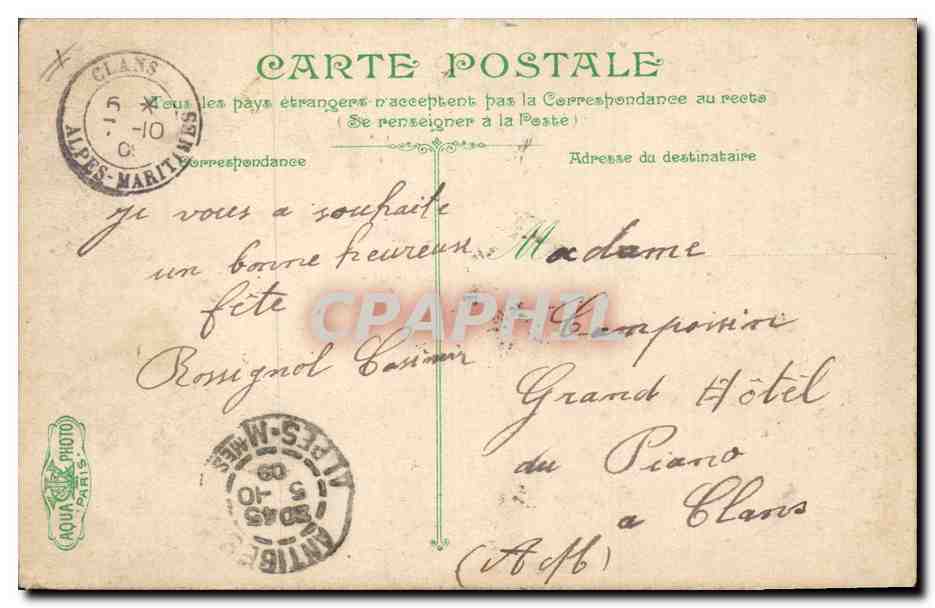 CARTE POSTALE
Tous les pays étrangers n'acceptent pas la Correspondance au recto
(Se renseigner à la Poste)
Correspondance
Adresse du destinataire
CLANS
5 *
-10
ALPES-MARITIMES
je vous a souhaite
un bonne heureuse
fête
Rossignol Casimir
Madame
Campoissin
Grand Hôtel
du Piano
a Clans
(A M)
CPAPHIL
AQUA PHOTO
PARIS
ANTIBES
45
5 -10
09
ALPES-MMES